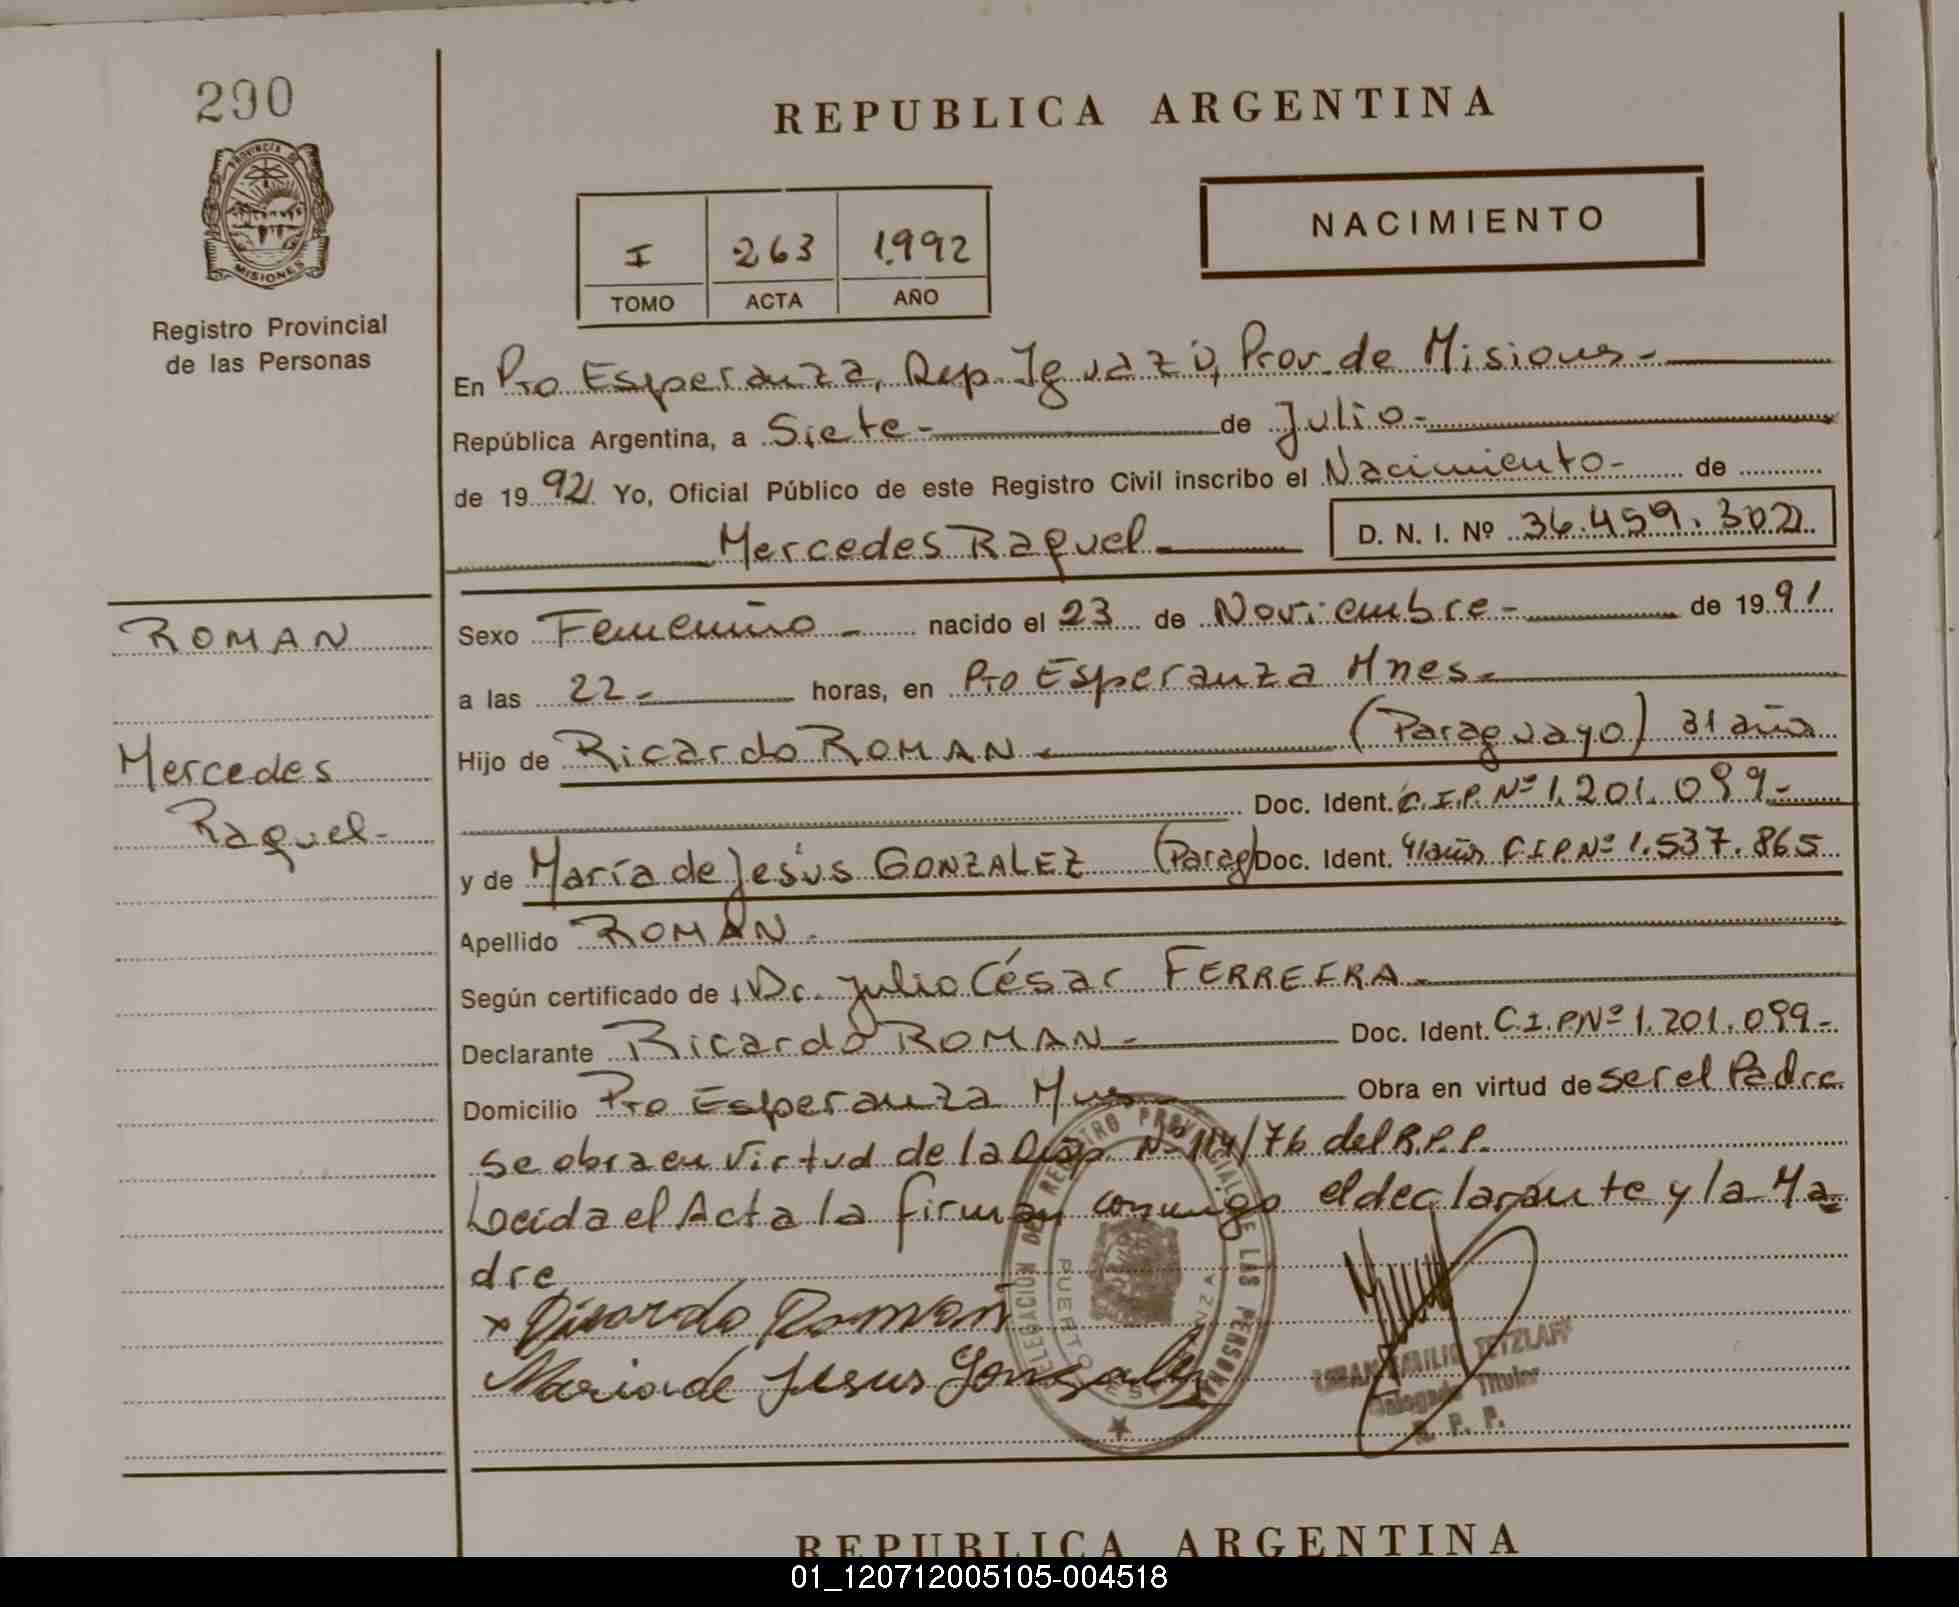 290
PROVINCIA DE
MISIONES
Registro Provincial
de las Personas
REPUBLICA ARGENTINA
NACIMIENTO
I 263 1992
TOMO ACTA AÑO
En Pto Esperanza, Dep. Iguazú, Prov. de Misiones.-
República Argentina, a Siete.- de Julio.-
de 19 92 Yo, Oficial Público de este Registro Civil inscribo el Nacimiento- de
Mercedes Raquel.- D. N. I. Nº 36.459.302
ROMAN
Mercedes
Raquel-
Sexo Femenino - nacido el 23 de Noviembre.- de 19 91
a las 22.- horas, en Pto Esperanza Mnes.-
Hijo de Ricardo ROMAN.- (Paraguayo) 31 años
Doc. Ident. C.I.P. Nº 1.201.099.-
y de María de Jesús GONZALEZ (Parag) Doc. Ident. 41 años C.I.P. Nº 1.537.865
Apellido ROMAN.-
Según certificado de Dr. Julio César FERREIRA.-
Declarante Ricardo ROMAN.- Doc. Ident. C.I.P Nº 1.201.099-
Domicilio Pto Esperanza Mnes Obra en virtud de ser el Padre
Se obra en virtud de la Disp. Nº 114/76 del R.P.P.
Leída el Acta la firman conmigo el declarante y la Ma-
dre
x Ricardo Roman
Maria de Jesus Gonzalez
DELEGACION DEL REGISTRO PROVINCIAL DE LAS PERSONAS
PUERTO ESPERANZA
EMILIO TETZLAFF
Delegado Titular
R. P. P.
REPUBLICA ARGENTINA
01_120712005105-004518